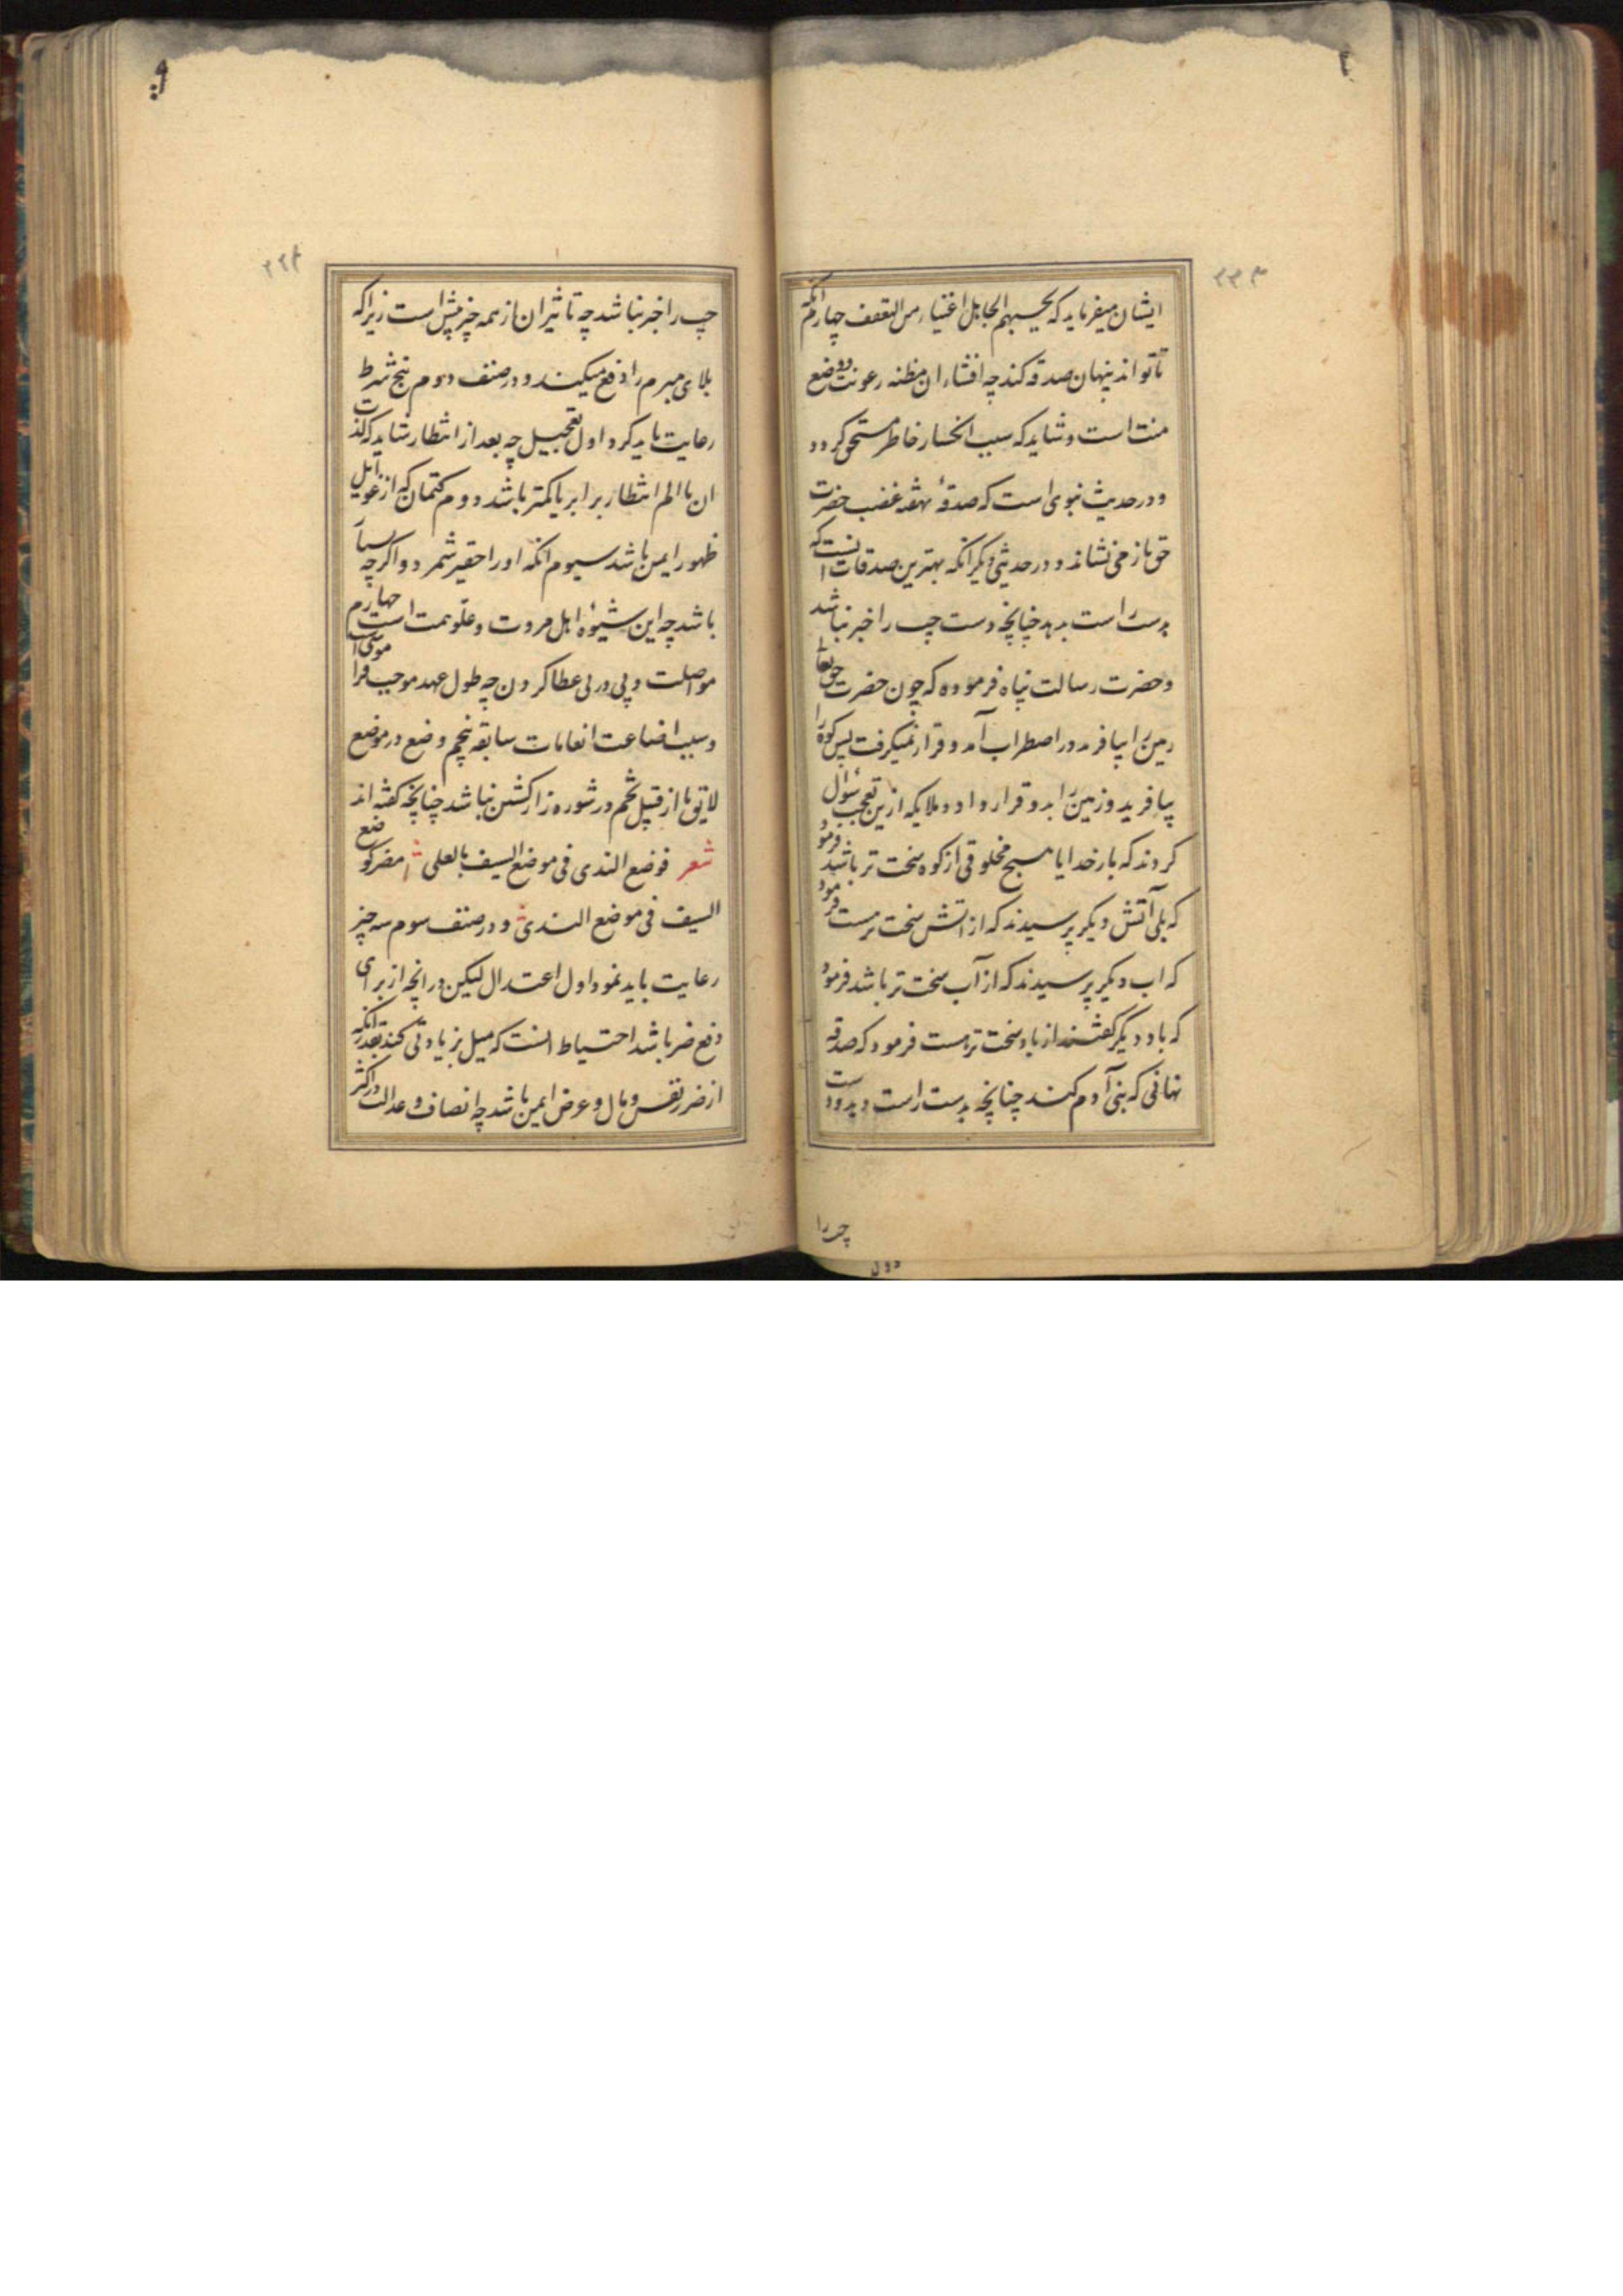 ۲۲۳
ایشان میفرماید که یحسبهم الجاهل اغنیاء من التعفف چهارم انکه
تا تواند پنهان صدقه کند چه افشاء ان مظنه رعونت و وضع
منت است و شاید که سبب انکسار خاطر مستحق کردد
و در حدیث نبوی است که صدقهٔ غضب حضرت
حق باز می نشاند و در حدیثی دیگر انکه بهترین صدقات انست که
بدست راست بدهد چنانچه دست چپ را خبر نباشد
و حضرت رسالت پناه فرموده که چون حضرت حق تعا
زمین را بیافرید در اضطراب آمد و قرار نمیکرفت پس کوه را
بیافرید و زمین را بدو قرار داد و ملایکه ازین تعجب سؤال
کردند که بار خدایا هیچ مخلوقی از کوه سخت تر باشد فرمود
که بلی آتش دیکر پرسیدند که از اتش سخت تر هست فرمود
که اب دیکر پرسیدند که از آب سخت تر باشد فرمود
که باد دیگر گفتند از باد سخت تر هست فرمود که صدقه
نهانی که بنی آدم کند چنانچه بدست راست دهد و دست
چپ را
۲۲۴
چپ را خبر نباشد چه تاثیر ان از همه چیز بیش است زیرا که
بلای مبرم را دفع میکند و در صنف دوم پنج شرط
رعایت باید کرد اول تعجیل چه بعد از انتظار شاید که لذت
ان با الم انتظار برابر یا کمتر باشد دوم کتمان که از غوایل
ظهور ایمن باشد سیوم انکه او را حقیر شمرد و اکر چه بسیا
باشد چه این شیوهٔ اهل مروت و علو همت است چهارم
مواصلت و پی در پی عطا کردن چه طول عهد موجب فراموشی
و سبب اضاعت انعامات سابقه پنجم وضع در موضع
لایق تا از قبیل تخم در شوره زار کشتن نباشد چنانچه کفته اند
شعر فوضع الندی فی موضع السیف بالعلی مضر کوضع
السیف فی موضع الندی و در صنف سوم سه چیز
رعایت باید نمود اول اعتدال لیکن در انچه از برای
دفع ضر باشد احتیاط انست که میل بزیادتی کند بقدر انکه
از ضرر نفس و مال و عرض ایمن باشد چه انصاف و عدالت در اکثر